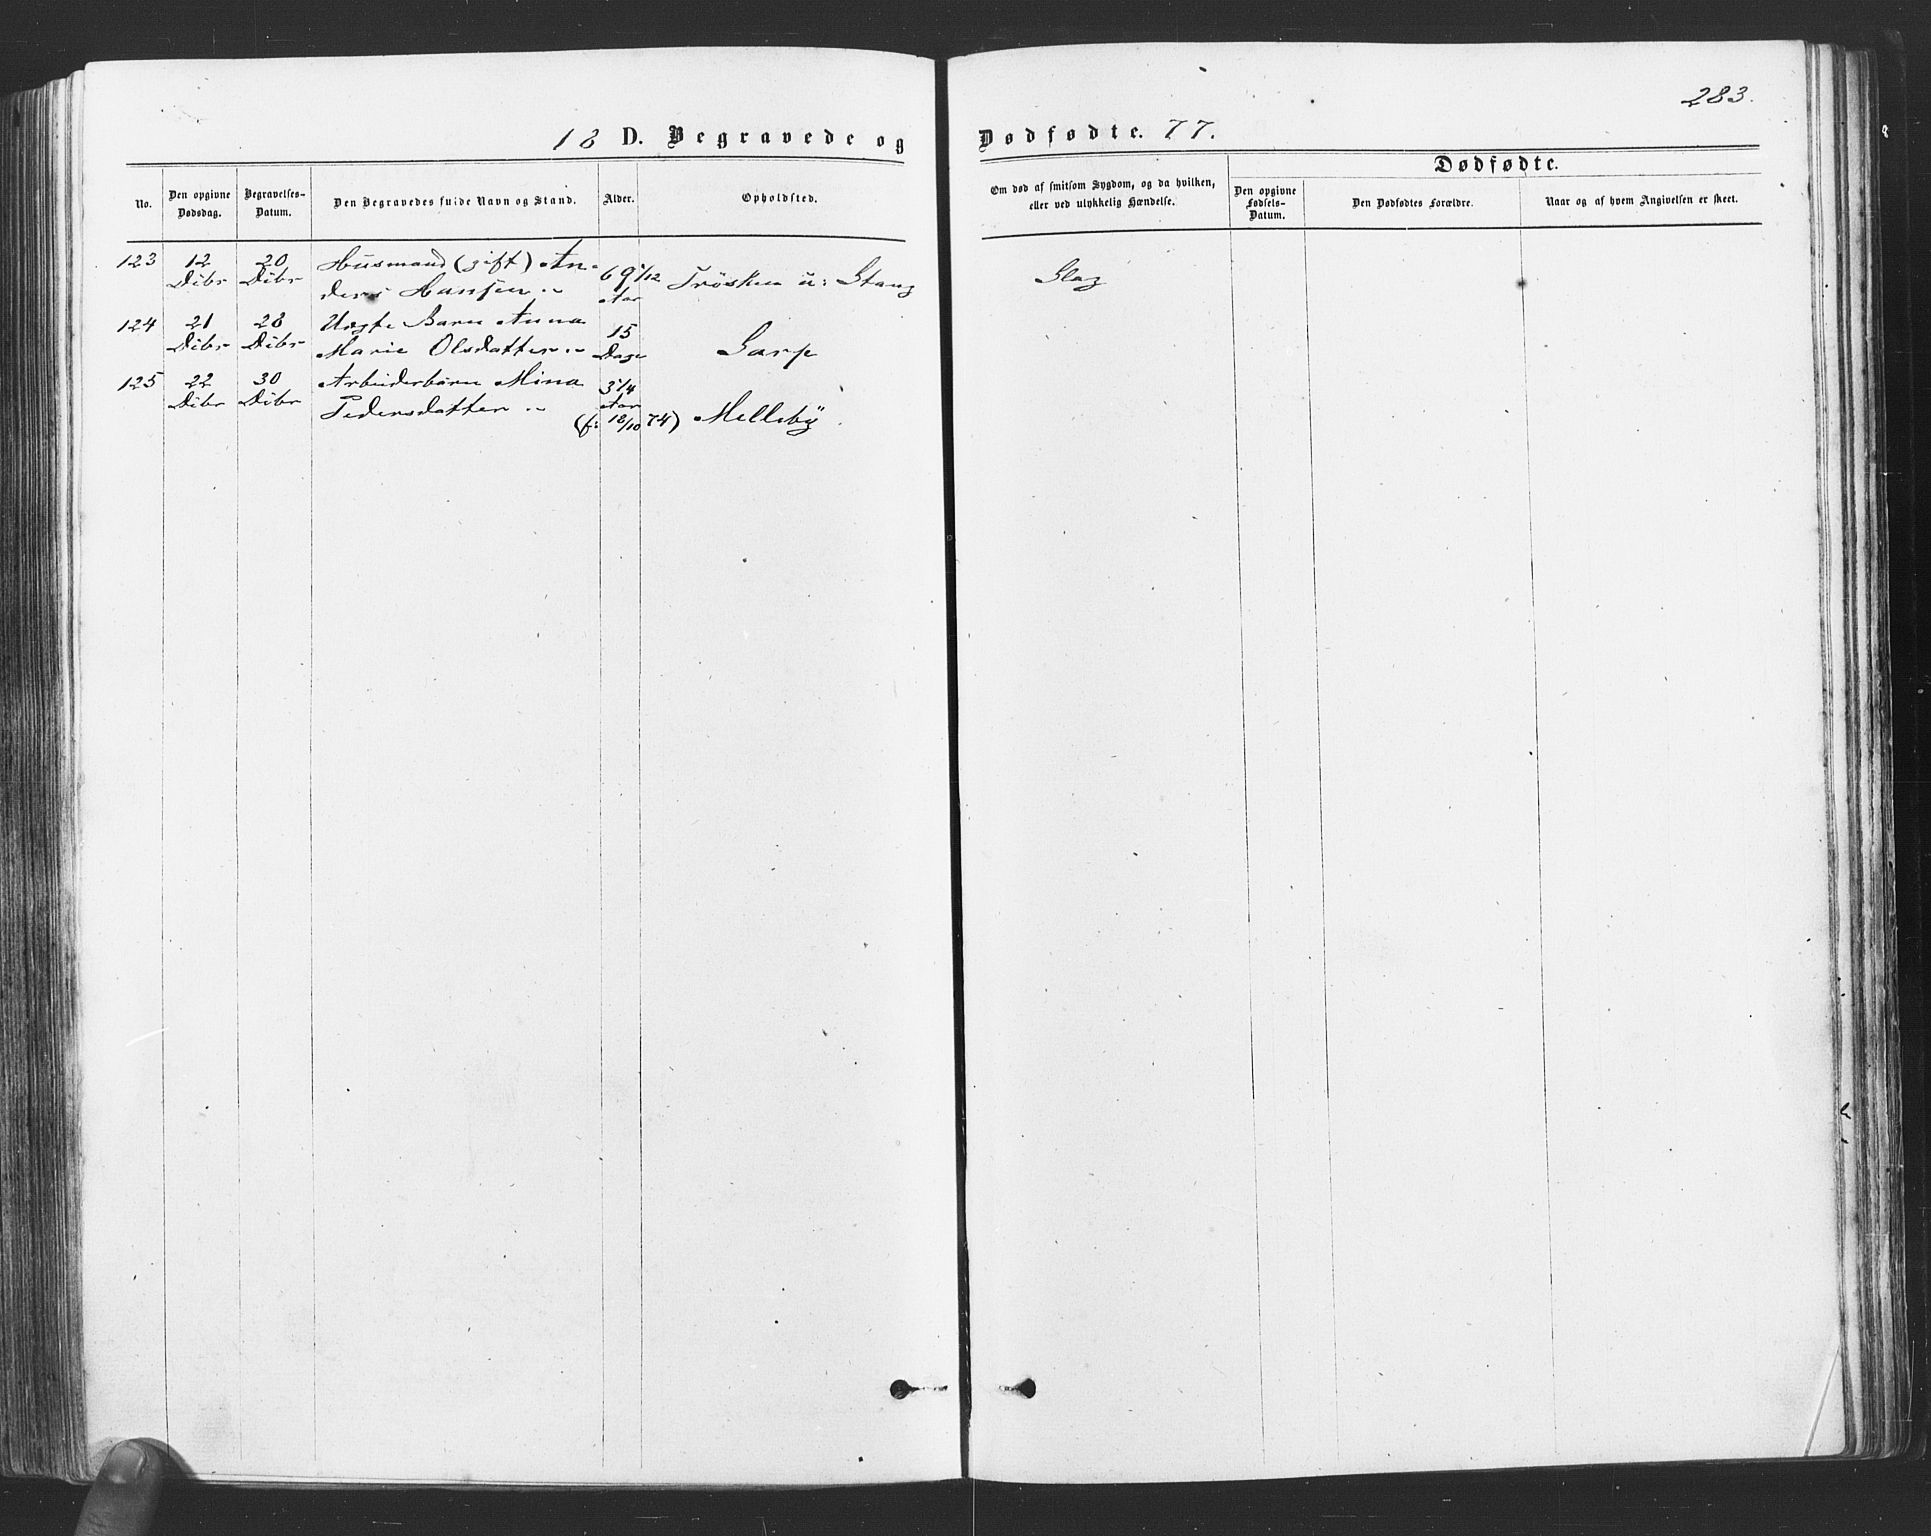 283.
18 D. Begravede og Dødfødte. 77.
Dødfødte.
No.
Den opgivne Dødsdag.
Begravelses-Datum.
Den Begravedes fulde Navn og Stand.
Alder.
Opholdsted.
Om død af smitsom Sygdom, og da hvilken,
eller ved ulykkelig Hændelse.
Den opgivne Fødsels-Datum.
Den Dødfødtes Forældre.
Naar og af hvem Angivelsen er skeet.
123 12 20 Husmand (gift) An-
Dcbr Dcbr ders Hansen 69 1/12 Aar Trösken u: Stang Slag
124 21 28 Uægte Barn Anna
Dcbr Dcbr Marie Olsdatter 15 Dage Garp
125 22 30 Arbeiderbarn Mina
Dcbr Dcbr Pedersdatter 3 1/4 Aar
(f: 12/10 74) Melleby